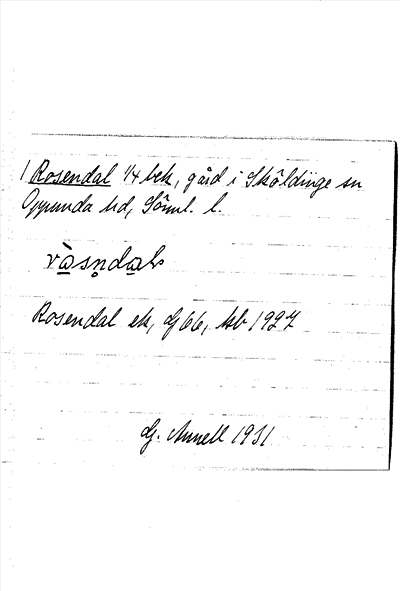 Rosendal 1/4 bek, gård i Sköldinge sn
Oppunda hd, Söml. l.
ròsṇdaḷ
Rosendal ek, Gj 66, kb 1927
G. Annell 1931